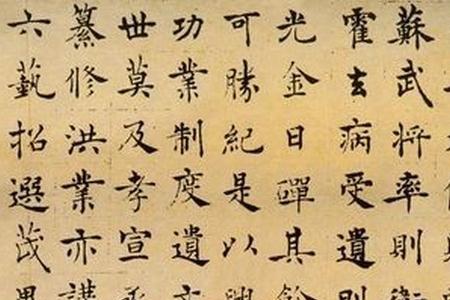 蘇武將率則衛
霍去病受遺則
光金日磾其餘
可勝紀是以興
功業制度遺文
世莫及孝宣承
纂修洪業亦講
六藝招選茂異